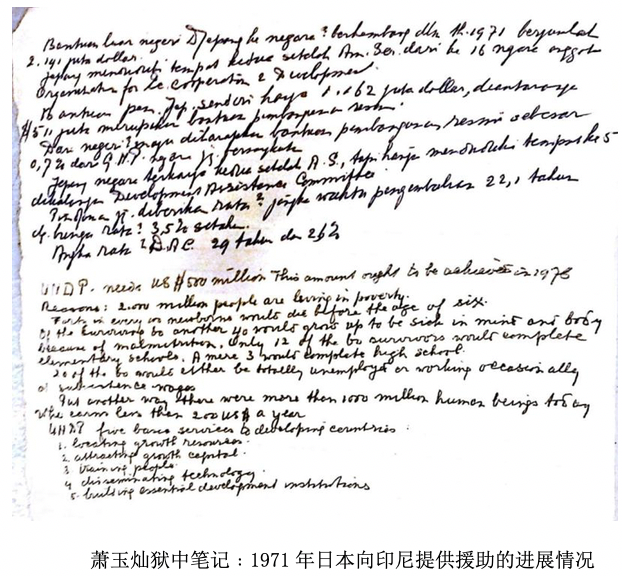 Bantuan luar negeri Djepang ke negara² berkembang dlm th. 1971 berjumlah
2.141 juta dollar.
Jepang menduduki tempat kedua setelah Am. Ser. dari ke 16 ngara anggota
Organization for Ec. Cooperation & Development.
bantuan pem. Jep. sendiri hanya 1.162 juta dollar, diantaranya
$ 511 juta merupakan bantuan pembangunan resmi.
Dari negeri² maju diharapkan bantuan pembangunan resmi sebesar
0,7% dari G.N.P. ngara jg. bersangkutan
Jepang negara terkaya kedua setelah A.S., tapi hanya menduduki tempat ke 5
dikalangan Development Assistance Committee
Pindjaman jg. diberikan rata² jangka waktu pengembalian 22,1 tahun
dg. bunga rata² 3,5% setahun.
Angka rata² D.A.C. 29 tahun dan 2,6%
UNDP. needs US $500 million This amount ought to be achieved in 1978
Reasons: 2.000 million people are living in poverty.
Forty in every 100 newborns would die before the age of six.
Of the surviving 60 another 40 would grow up to be sick in mind and body
because of malnutrition. Only 12 of the 60 survivors would complete
elementary schools. A mere 3 would complete high school.
20 of the 60 would either be totally unemployed or working occasionally
at subsistence wages
Put another way there were more than 1000 million human beings today
who earns less than 200 US$ a year
UNDP five basic services to developing countries
1. locating growth resources.
2. attracting growth capital.
3 training people.
4 disseminating technology.
5. building essential development institutions
萧玉灿狱中笔记：1971 年日本向印尼提供援助的进展情况